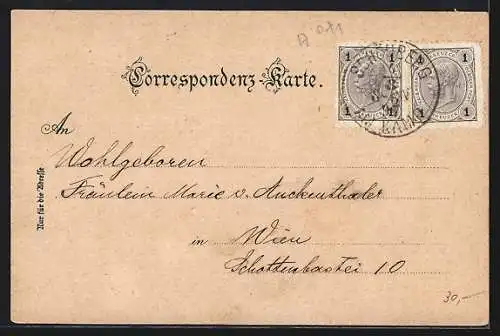 A 011
Correspondenz-Karte.
1 1
1 1
1 1
SCHÖNBERG
KAMP
An
Wohlgeboren
Fräulein Marie v. Auckenthaler
in Wien
Schottenbastei 10
Nur für die Adresse
30,-